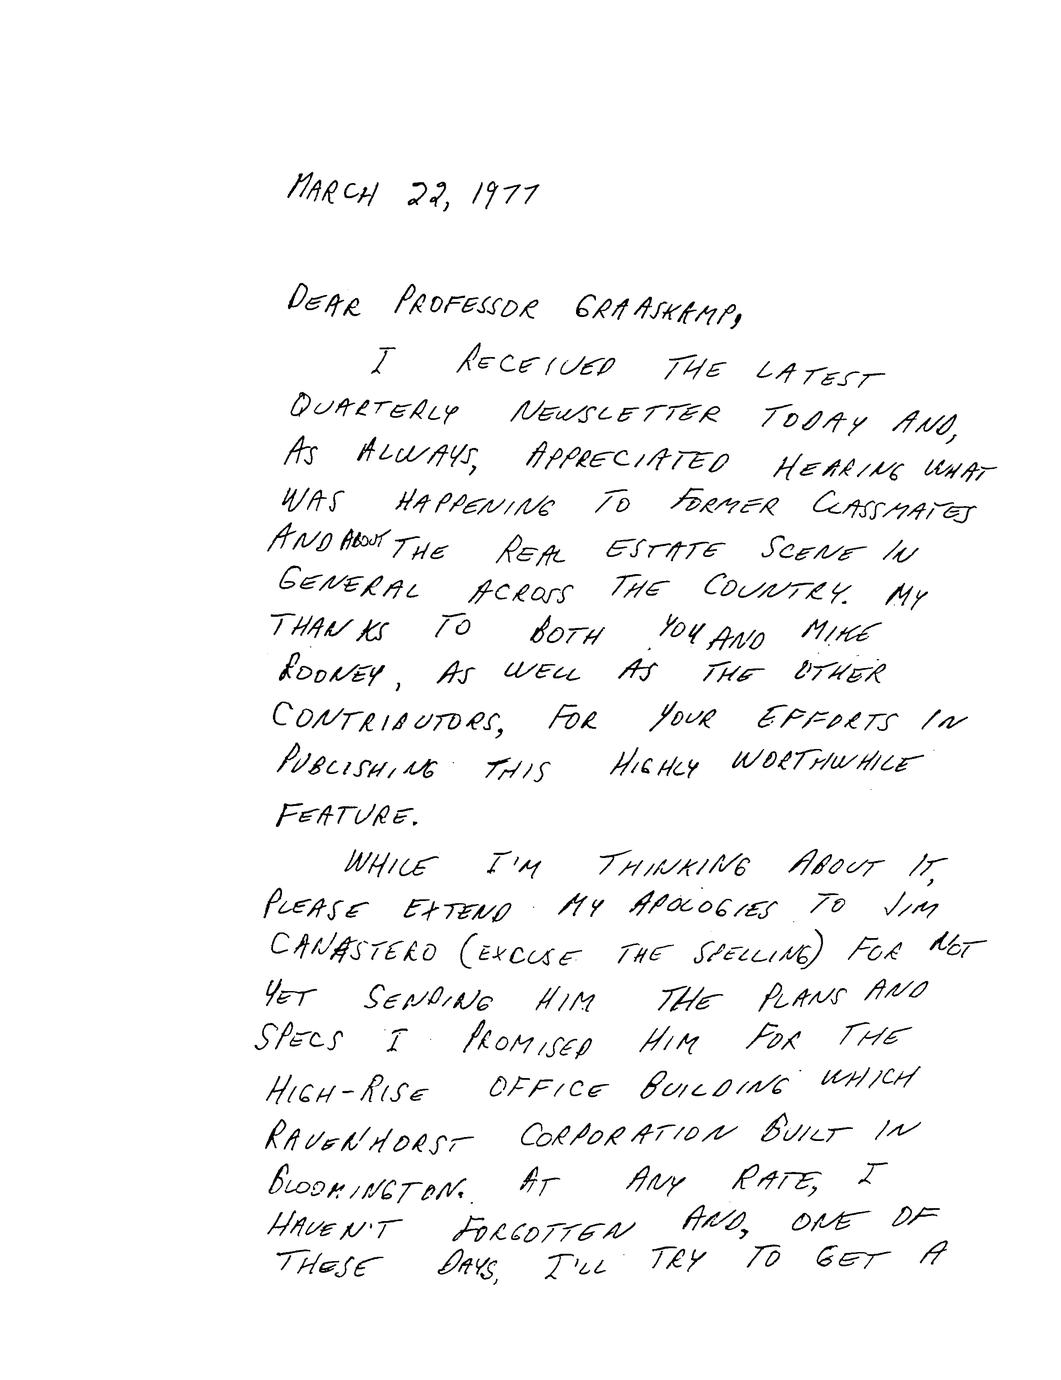 MARCH 22, 1977
DEAR PROFESSOR GRAASKAMP,
I RECEIVED THE LATEST
QUARTERLY NEWSLETTER TODAY AND,
AS ALWAYS, APPRECIATED HEARING WHAT
WAS HAPPENING TO FORMER CLASSMATES
AND ABOUT THE REAL ESTATE SCENE IN
GENERAL ACROSS THE COUNTRY. MY
THANKS TO BOTH YOU AND MIKE
ROONEY, AS WELL AS THE OTHER
CONTRIBUTORS, FOR YOUR EFFORTS IN
PUBLISHING THIS HIGHLY WORTHWHILE
FEATURE.
WHILE I'M THINKING ABOUT IT,
PLEASE EXTEND MY APOLOGIES TO JIM
CANASTERO (EXCUSE THE SPELLING) FOR NOT
YET SENDING HIM THE PLANS AND
SPECS I PROMISED HIM FOR THE
HIGH-RISE OFFICE BUILDING WHICH
RAUENHORST CORPORATION BUILT IN
BLOOMINGTON. AT ANY RATE, I
HAVEN'T FORGOTTEN AND, ONE OF
THESE DAYS, I'LL TRY TO GET A